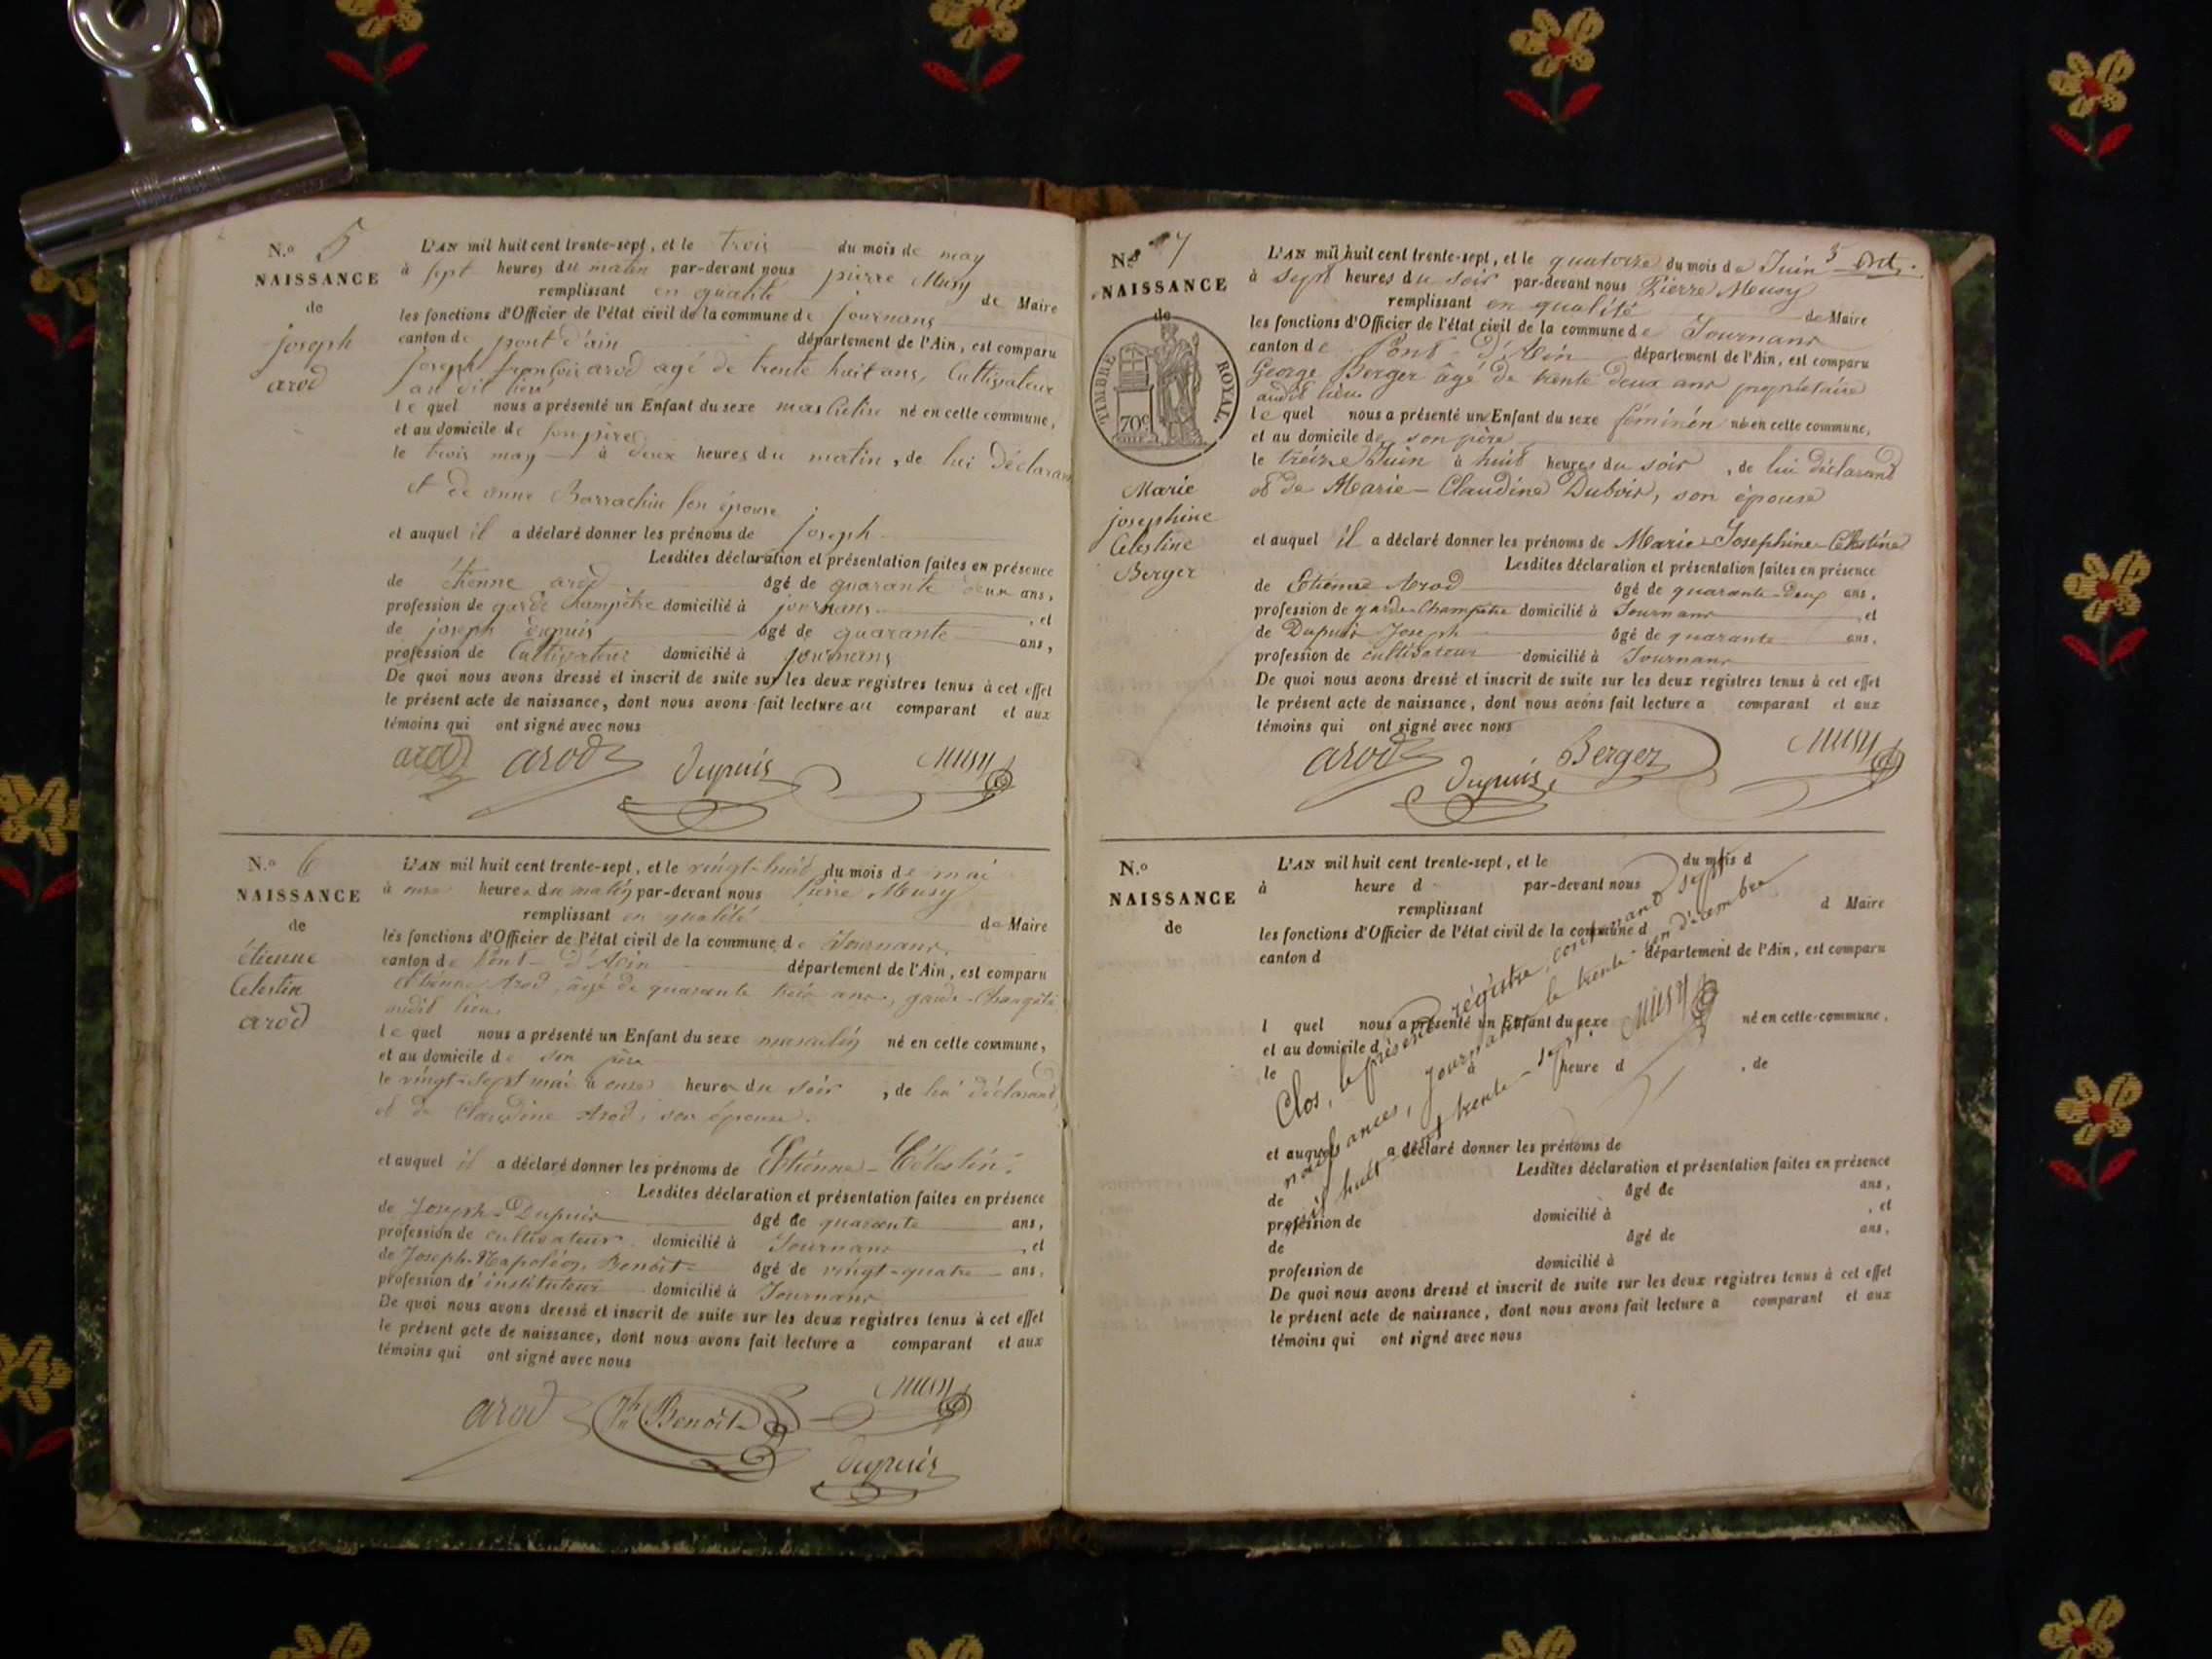 N.o 5
NAISSANCE
de
joseph
arod
L'AN mil huit cent trente-sept, et le trois du mois de may
à sept heures du matin par-devant nous pierre Musy
remplissant en qualité de Maire
les fonctions d'Officier de l'état civil de la commune de journans
canton de pont d'ain département de l'Ain, est comparu
joseph françois arod agé de trente huit ans, Cultivateur
au dit lieu
le quel nous a présenté un Enfant du sexe masculin né en cette commune,
et au domicile de son père
le trois may à deux heures du matin, de lui déclarant
et de anne Barrachin son épouse
et auquel il a déclaré donner les prénoms de joseph
Lesdites déclaration et présentation faites en présence
de étienne arod âgé de quarante deux ans,
profession de garde champêtre domicilié à journans, et
de joseph dupuis âgé de quarante ans,
profession de Cultivateur domicilié à journans
De quoi nous avons dressé et inscrit de suite sur les deux registres tenus à cet effet
le présent acte de naissance, dont nous avons fait lecture au comparant et aux
témoins qui ont signé avec nous
arod arod dupuis Musy
N.o 6
NAISSANCE
de
étienne
Celestin
arod
L'AN mil huit cent trente-sept, et le vingt-huit du mois de mai
à onze heures du matin par-devant nous Pierre Musy
remplissant en qualité de Maire
les fonctions d'Officier de l'état civil de la commune de Journans
canton de Pont-d'Ain département de l'Ain, est comparu
Etienne Arod, âgé de quarante trois ans, garde-Champêtre
audit lieu.
le quel nous a présenté un Enfant du sexe masculin né en cette commune,
et au domicile de son père
le vingt-sept mai à onze heures du soir, de lui déclarant
et de Claudine Arod, son épouse.
et auquel il a déclaré donner les prénoms de Etienne-Célestin.
Lesdites déclaration et présentation faites en présence
de Joseph-Dupuis âgé de quarante ans,
profession de cultivateur domicilié à Journans, et
de Joseph-Napoléon Benoit âgé de vingt-quatre ans,
profession d'instituteur domicilié à Journans
De quoi nous avons dressé et inscrit de suite sur les deux registres tenus à cet effet
le présent acte de naissance, dont nous avons fait lecture a comparant et aux
témoins qui ont signé avec nous
arod Jh Benoit Musy
dupuis
N.o 7
NAISSANCE
de
TIMBRE ROYAL.
70c
Marie
josephine
Celestine
Berger
L'AN mil huit cent trente-sept, et le quatorze du mois de Juin
à sept heures du soir par-devant nous Pierre Musy
remplissant en qualité de Maire
les fonctions d'Officier de l'état civil de la commune de Journans
canton de Pont-d'Ain département de l'Ain, est comparu
George Berger âgé de trente deux ans propriétaire
audit lieu
le quel nous a présenté un Enfant du sexe féminin né en cette commune,
et au domicile de son père
le treize Juin à huit heures du soir, de lui déclarant
et de Marie-Claudine Dubois, son épouse
et auquel il a déclaré donner les prénoms de Marie-Josephine-Célestine
Lesdites déclaration et présentation faites en présence
de Etienne Arod âgé de quarante-deux ans,
profession de garde-Champêtre domicilié à Journans et
de Dupuis Joseph âgé de quarante ans,
profession de cultivateur domicilié à Journans
De quoi nous avons dressé et inscrit de suite sur les deux registres tenus à cet effet
le présent acte de naissance, dont nous avons fait lecture a comparant et aux
témoins qui ont signé avec nous
arod dupuis Berger Musy
N.o
NAISSANCE
de
L'AN mil huit cent trente-sept, et le du mois d
à heure d par-devant nous
remplissant d Maire
les fonctions d'Officier de l'état civil de la commune d
canton d département de l'Ain, est comparu
l quel nous a présenté un Enfant du sexe né en cette commune,
et au domicile d
le à heure d, de
et auquel a déclaré donner les prénoms de
Lesdites déclaration et présentation faites en présence
de âgé de ans,
profession de domicilié à, et
de âgé de ans,
profession de domicilié à
De quoi nous avons dressé et inscrit de suite sur les deux registres tenus à cet effet
le présent acte de naissance, dont nous avons fait lecture a comparant et aux
témoins qui ont signé avec nous
Clos, le présent régistre, contenant sept
naissances, Journans, le trente-un décembre
mil huit cent trente-sept.
Musy